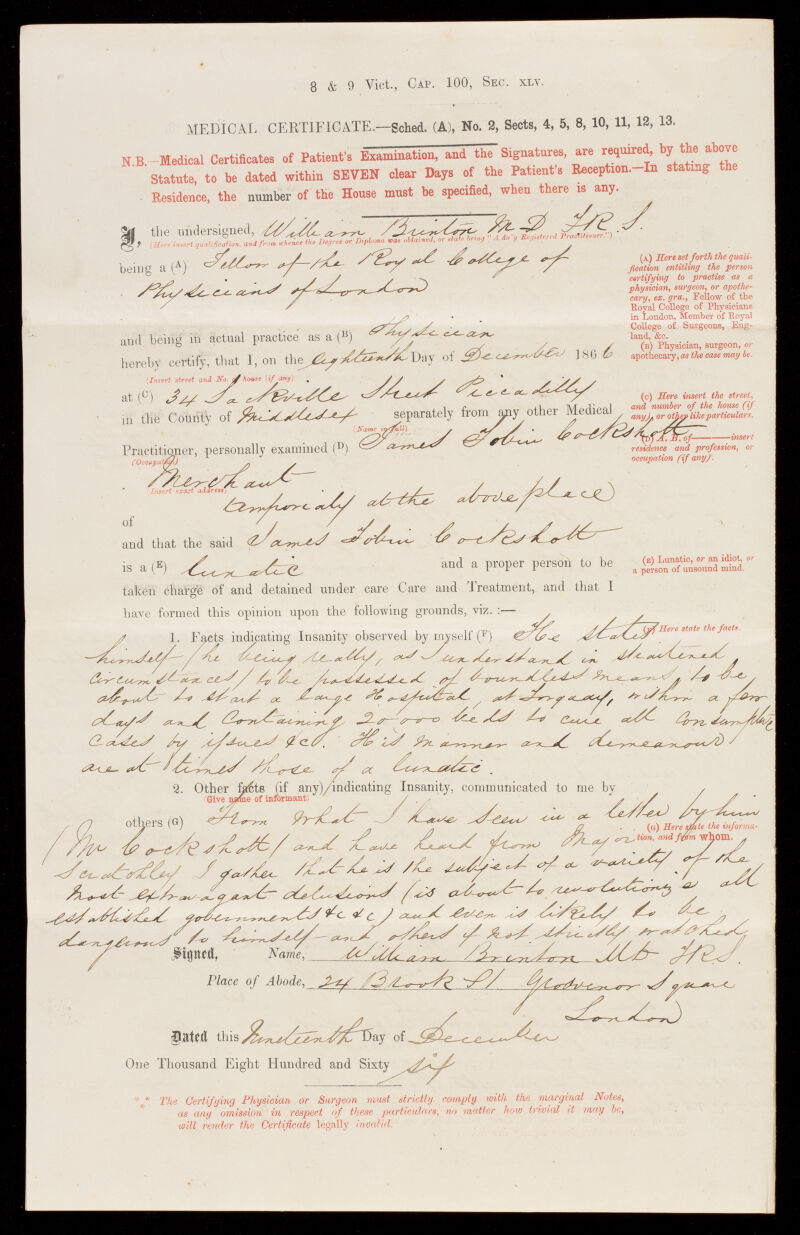 8 & 9 Vict., Cap. 100, Sec. xlv.
MEDICAL CERTIFICATE.—Sched. (A), No. 2, Sects, 4, 5, 8, 10, 11, 12, 13.
N.B.—Medical Certificates of Patient's Examination, and the Signatures, are required, by the above
Statute, to be dated within SEVEN clear Days of the Patient's Reception.—In stating the
Residence, the number of the House must be specified, when there is any.
I, the undersigned, William Brinton M D F R. S.
(Here insert qualification, and from whence the Degree or Diploma was obtained, or state being "A du'y Registered Practitioner.")
being a (A) Fellow of the Royal College of
Physicians of London
(A) Here set forth the quali-
fication entitling the person
certifying to practise as a
physician, surgeon, or apothe-
cary, ex. gra., Fellow of the
Royal College of Physicians
in London, Member of Royal
College of Surgeons, Eng-
land, &c.
and being in actual practice as a (B) Physician
(B) Physician, surgeon, or
apothecary, as the case may be.
hereby certify, that I, on the Eighteenth Day of December 1866
(Insert street and No. of house (if any)
at (C) 34 Sackville Street Piccadilly
(C) Here insert the street,
and number of the house (if
any), or other like particulars.
in the County of Middlesex separately from any other Medical
(Name in full)
Practitioner, personally examined (D) James Tobin Cockshott
(D) A. B. of——insert
residence and profession, or
occupation (if any).
(Occupation)
Merchant
(Insert exact address)
of temporialy at the above place
and that the said James Tobin Cockshott
is a (E) lunatic and a proper person to be
(E) Lunatic, or an idiot, or
a person of unsound mind.
taken charge of and detained under care Care and Treatment, and that I
have formed this opinion upon the following grounds, viz. :—
1. Facts indicating Insanity observed by myself (F) He stated
(F) Here state the facts.
himself (he being really, as I understand in straitened
circumstances) to be possessed of boundless means, to be
about to start a large Hospital, at Torquay, within a few
days and containing 20 000 beds to cure all Consumptive
cases by issues &c. His manner and demeanour
are at times those of a lunatic.
2. Other facts (if any) indicating Insanity, communicated to me by
(Give name of informant)
others (G) From what I have seen in a letter by him
(G) Here state the informa-
tion, and from whom.
(Mr Cockshott) and have heard from Major
Scratchley I gather that he is the subject of a variety of the
most extravagant delusions (is about to revolutionize all
established governments &c &c) and even is likely to be
dangerous to himself and others if not strictly watched
Signed, Name, William Brinton MD FRS.
Place of Abode, 24 Brook St Grosvenor Square
London
Dated this Nineteenth Day of December
One Thousand Eight Hundred and Sixty six
*** The Certifying Physician or Surgeon must strictly comply with the marginal Notes,
as any omission in respect of these particulars, no matter how trivial it may be,
will render the Certificate legally invalid.